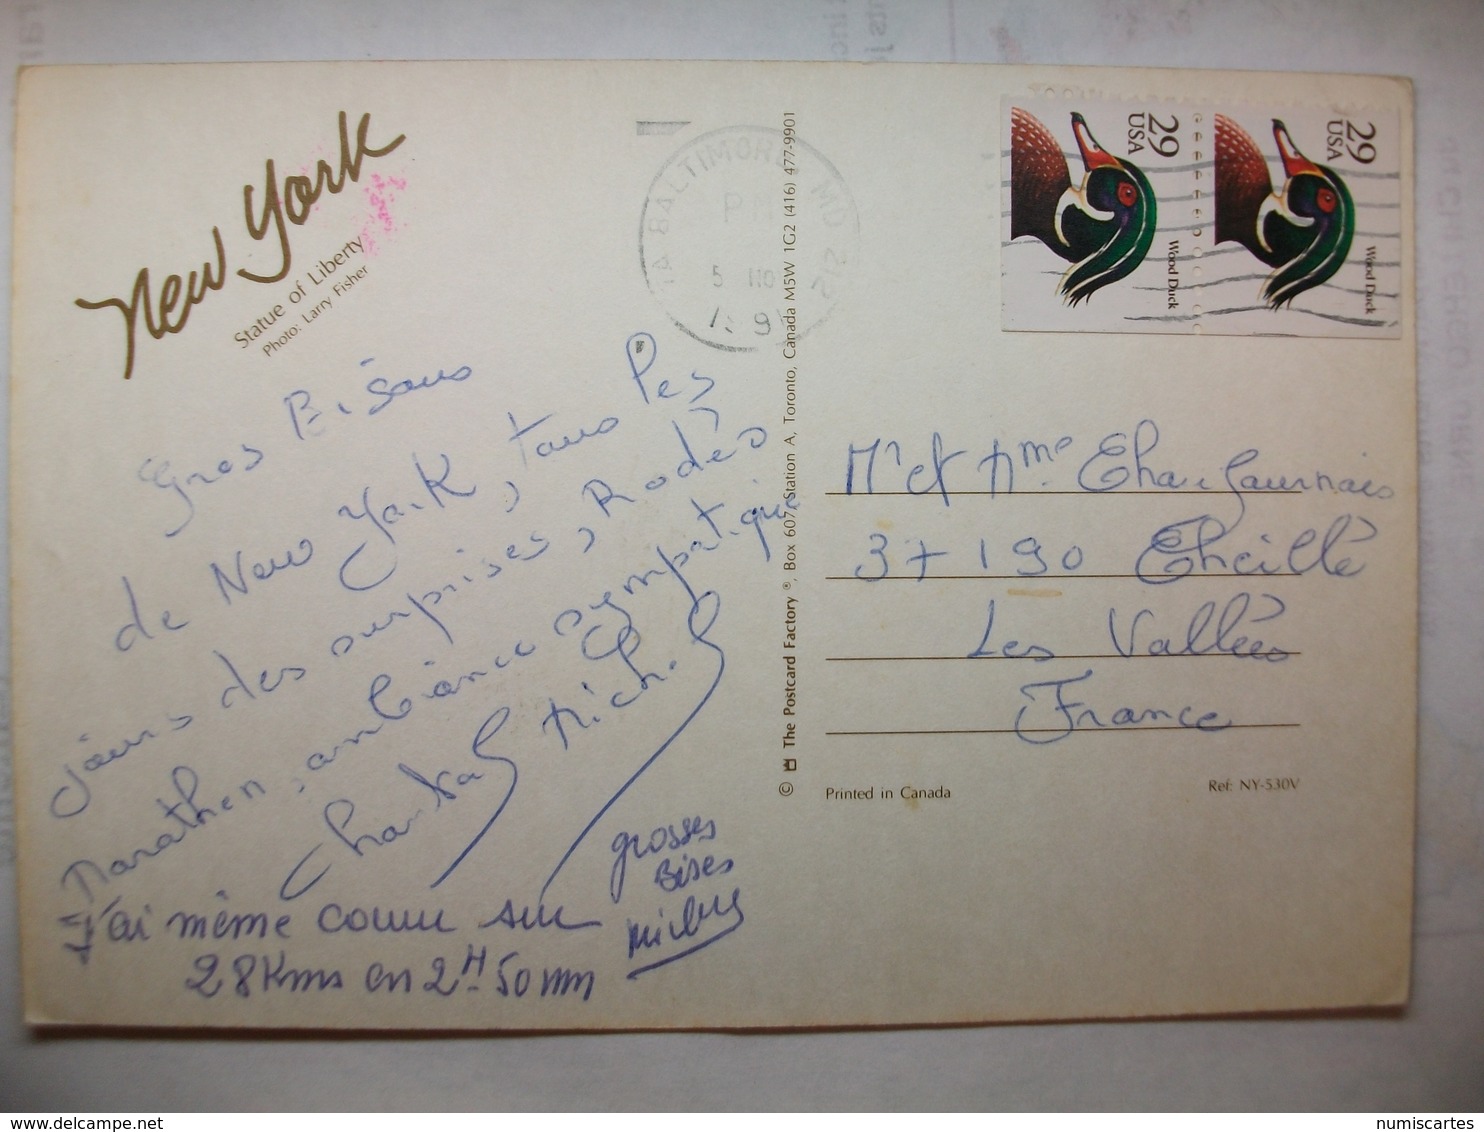 New York
Statue of Liberty
Photo: Larry Fisher
Gros Bisous
de New York, tous les
jours des surprises, Rodéo
Marathon, ambiance sympatique
Chantal Michel
J'ai même couru sur
28 Kms en 2H 50 mm
grosses
Bises
© The Postcard Factory®, Box 607, Station A, Toronto, Canada M5W 1G2 (416) 477-9901
BALTIMORE MD 212
PM
5
29
USA
Wood Duck
29
USA
Wood Duck
Mr et Mme
37190 Cheillé
Les Vallées
France
Printed in Canada
Ref: NY-530V
numiscartes
https://www.delcampe.net